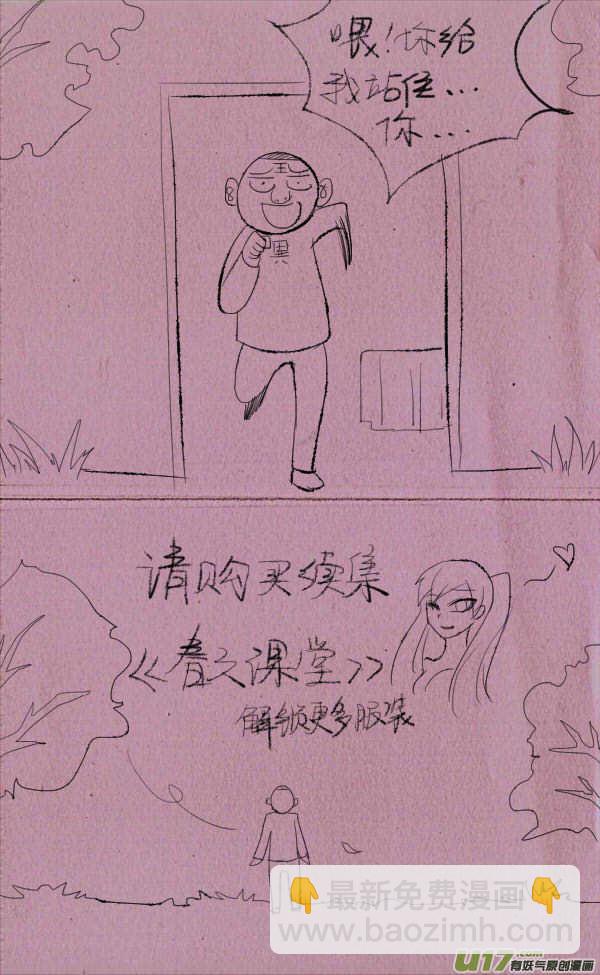 喂!你给
我站住...
你...
王
異
请购买续集
《春之课堂》
解锁更多服装
最新免费漫画
www.baozimh.com
U17.com
有妖气原创漫画